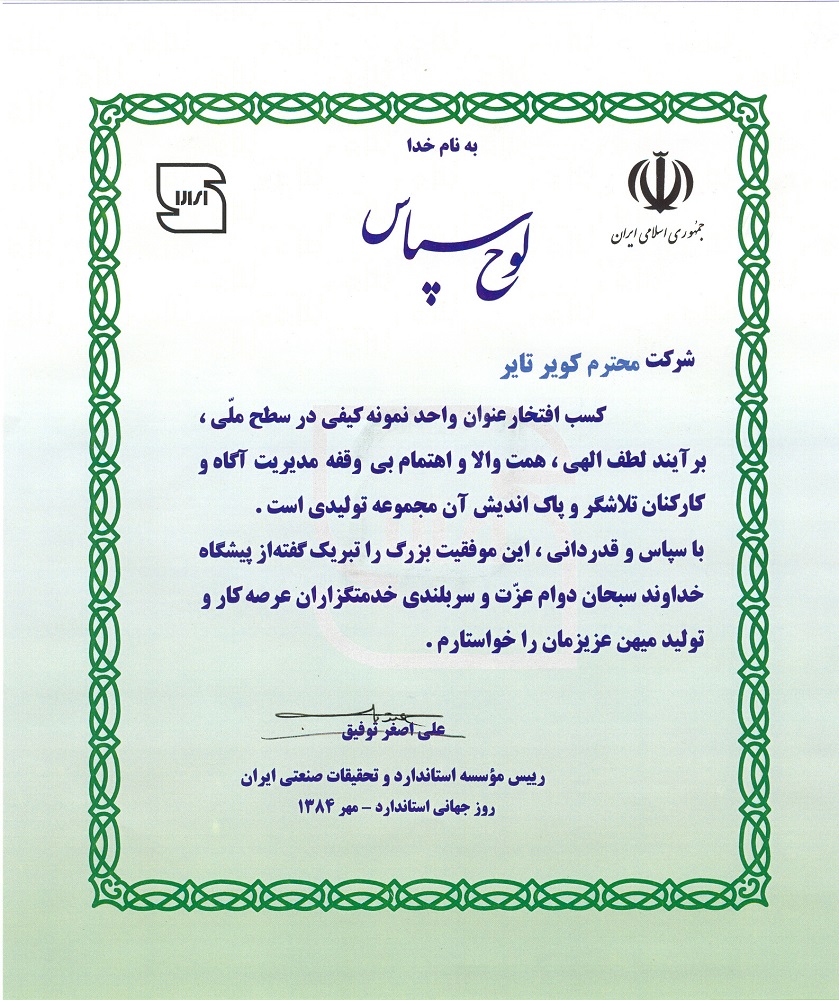 به نام خدا
ایران
جمهوری اسلامی ایران
لوح سپاس
شرکت محترم کویر تایر
کسب افتخار عنوان واحد نمونه کیفی در سطح ملّی ،
برآیند لطف الهی ، همت والا و اهتمام بی وقفه مدیریت آگاه و
کارکنان تلاشگر و پاک اندیش آن مجموعه تولیدی است .
با سپاس و قدردانی ، این موفقیت بزرگ را تبریک گفته از پیشگاه
خداوند سبحان دوام عزّت و سربلندی خدمتگزاران عرصه کار و
تولید میهن عزیزمان را خواستارم .
علی اصغر توفیق
رییس مؤسسه استاندارد و تحقیقات صنعتی ایران
روز جهانی استاندارد - مهر ۱۳۸۴